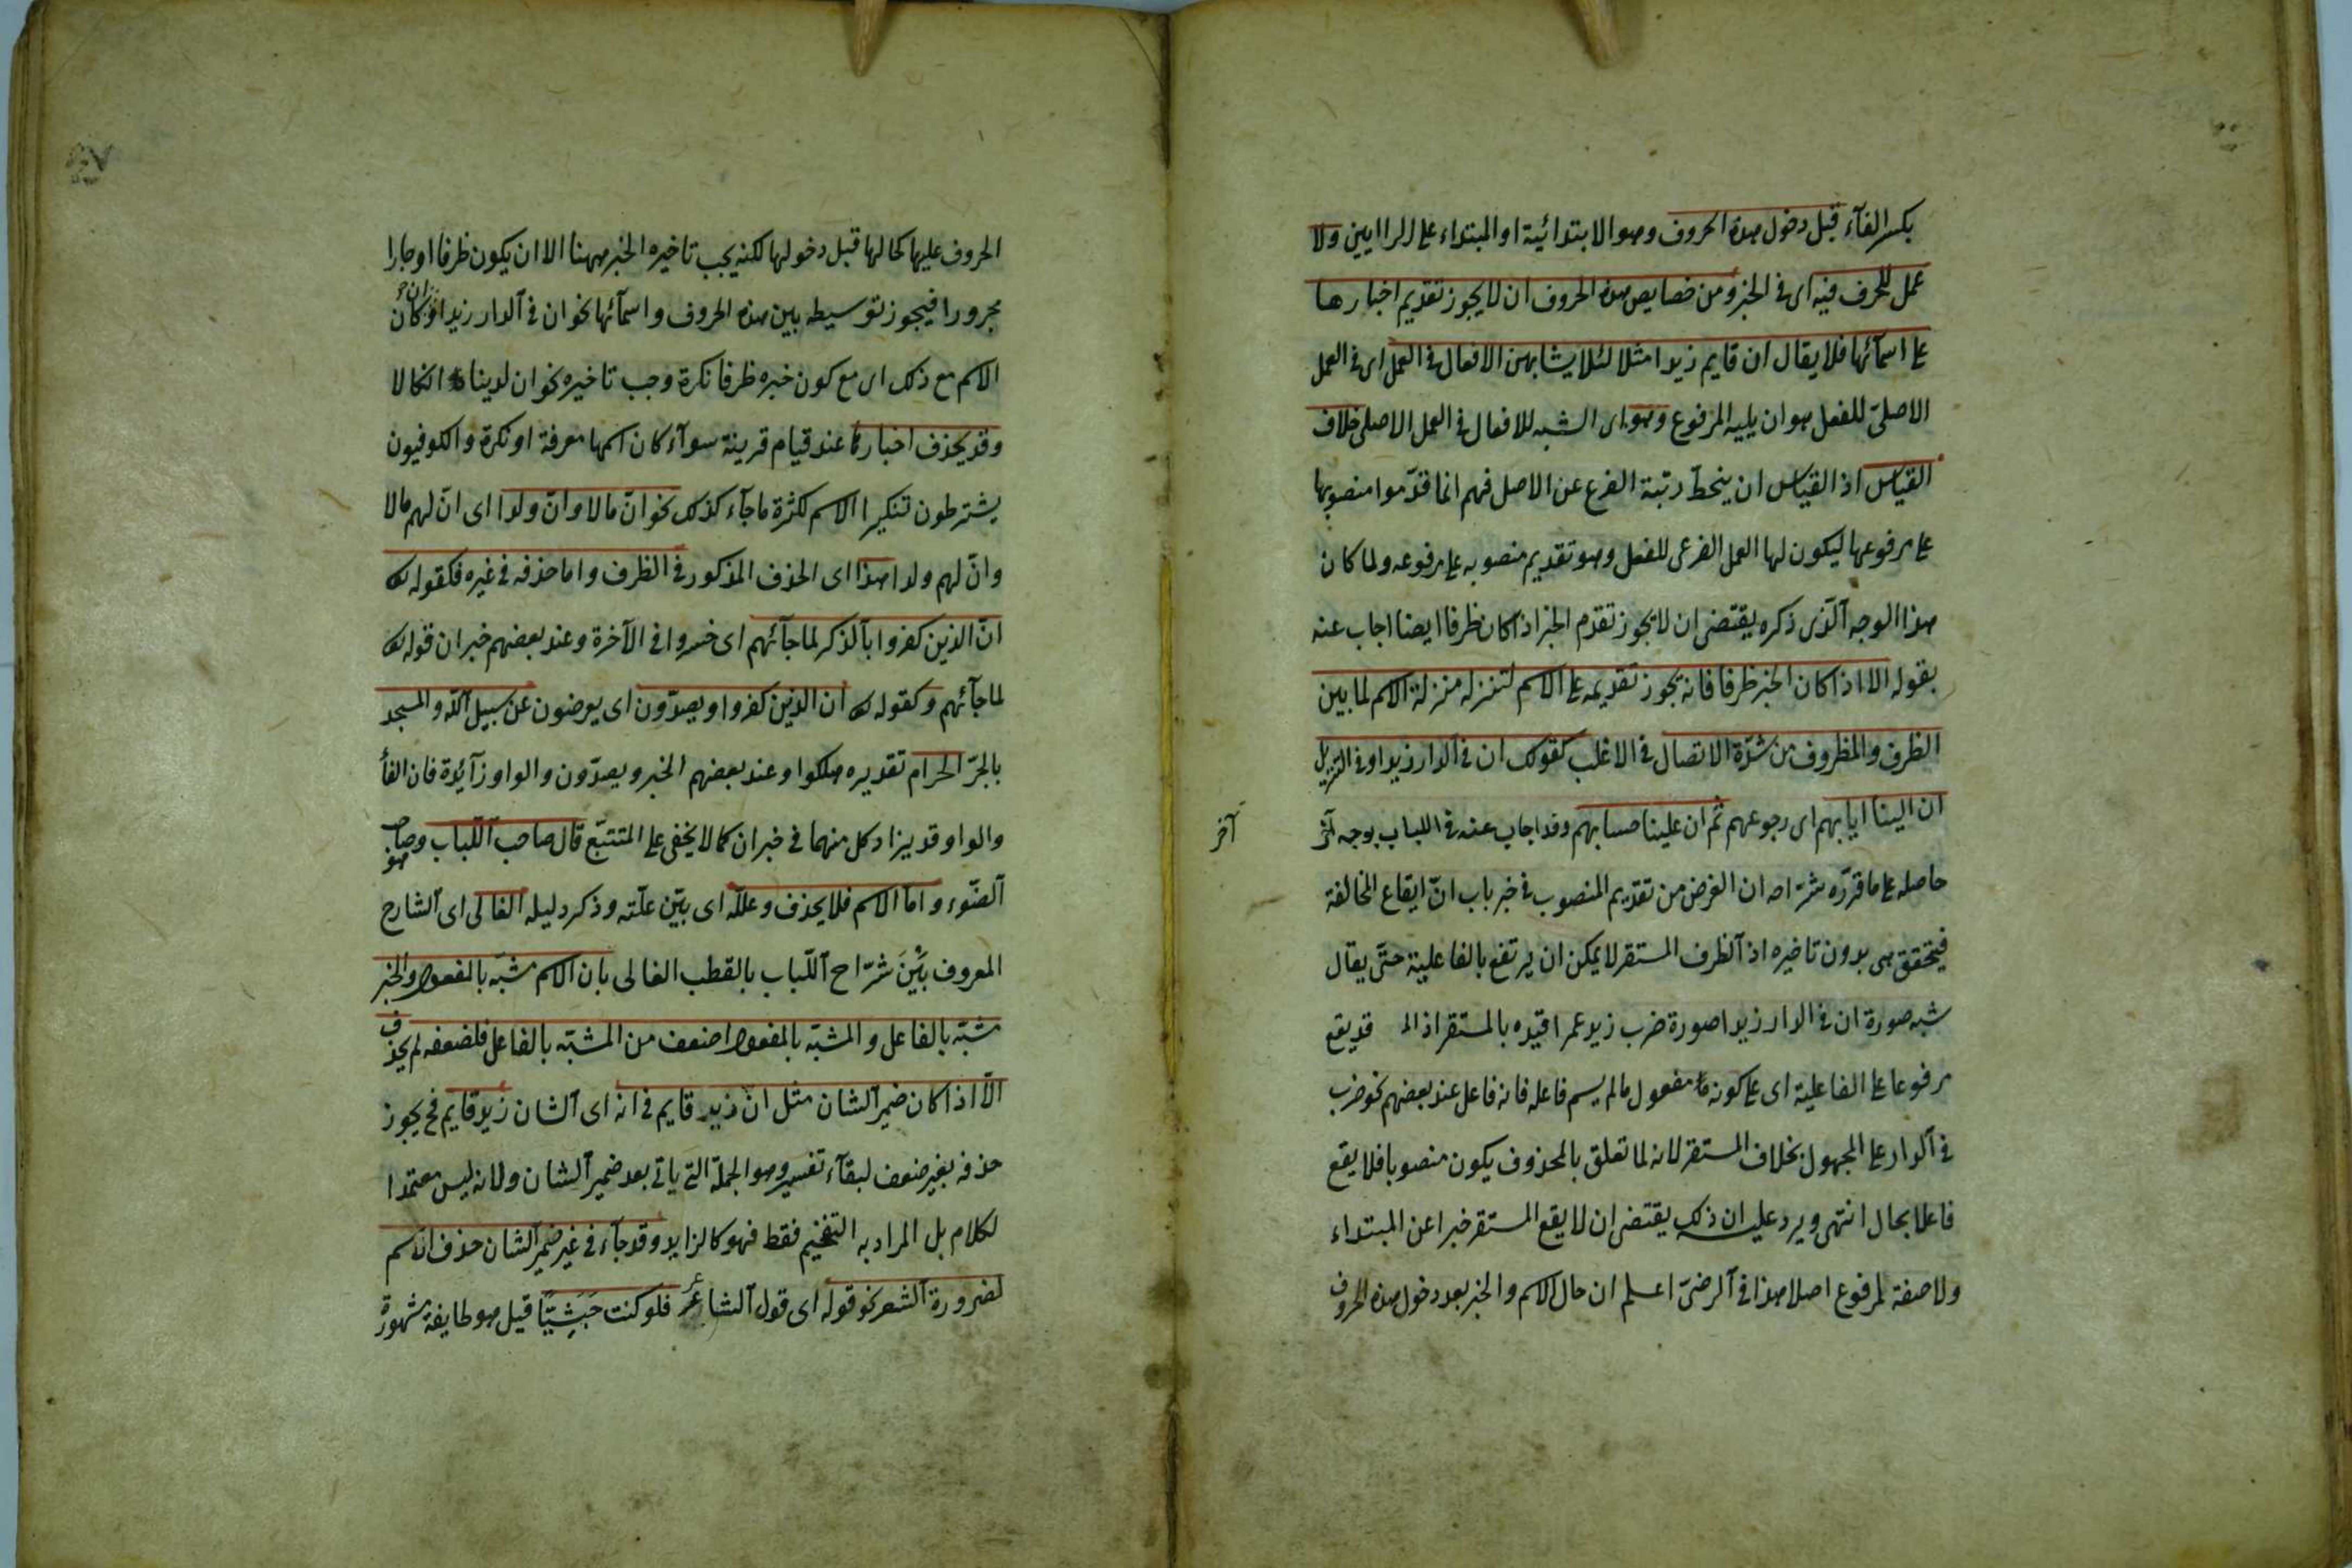 بكسر الفآء قبل دخول هذه الحروف وهو الابتدائية او المبتداء على الرايين ولا
عمل للحرف فيه اى فى الخبر ومن خصايص هذه الحروف ان لا يجوز تقديم اخبارها
على اسمآئها فلا يقال ان قايم زيدا مثلا لئلا يشابهن الافعال فى العمل اى فى العمل
الاصلىّ للفعل هو ان يليه المرفوع وهو اى الشبه للافعال فى العمل الاصلى خلاف
القياس اذ القياس ان ينحطّ رتبة الفرع عن الاصل فهم انما قدّموا منصوبها
على مرفوعها ليكون لها العمل الفرعى للفعل وهو تقديم منصوبه على مرفوعه ولما كان
هذا الوجه آلّذى ذكره يقتضى ان لا يجوز تقدم الخبر اذا كان ظرفا ايضا اجاب عنه
بقوله الا اذا كان الخبر ظرفا فانه يجوز تقديمه على الاسم لتنزله منزلة الاسم لما بين
الظرف والمظروف من شدّة الاتصال فى الاغلب كقولك ان فى الدار زيدا وفى التنزيل
ان الينا ايابهم اى رجوعهم ثم ان علينا حسابهم وقد اجاب عنه فى اللباب بوجه آخر
آخر
حاصله على ما قرّره شرّاحه ان الغرض من تقديم المنصوب فى خبر باب انّ ايقاع المخالفة
فيتحقق هى بدون تاخيره اذ آلظرف المستقر لا يمكن ان يرتفع بالفاعلية حتّى يقال
شبه صورة ان فى الدار زيدا صورة ضرب زيد عمرا قيّده بالمستقر اذ قد يقع
مرفوعا على الفاعلية اى على كونه مفعول ما لم يسم فاعله فانه فاعل عند بعضهم نحو ضرب
فى آلدار على المجهول بخلاف المستقر لانه لما تعلق بالمحذوف يكون منصوبا فلا يقع
فاعلا بحال انتهى ويرد عليه ان ذلك يقتضى ان لا يقع المستقر خبرا عن المبتداء
ولا صفة لمرفوع اصلا هذا فى آلرضىّ اعلم ان حال الاسم والخبر بعد دخول هذه الحروف
الحروف عليها كحالها قبل دخولها لكنه يجب تاخيره الخبر ههنا الا ان يكون ظرفا او جارا
مجرورا فيجوز توسيطه بين هذه الحروف واسمآئها نحو ان فى آلدار زيدا وان كان
الاسم مع ذلك اى مع كون خبره ظرفا نكرة وجب تاخيره نحو ان لدينا انكالا
وقد يحذف اخبارها عند قيام قرينة سوآء كان اسمها معرفة او نكرة والكوفيون
يشترطون تنكير الاسم لكثرة ما جآء كذلك نحو انّ مالا وانّ ولدا اى انّ لهم مالا
وانّ لهم ولدا هذا اى الحذف المذكور فى الظرف واما حذفه فى غيره فكقوله تعالى
انّ الذين كفروا بآلذكر لما جآئهم اى خسروا فى الآخرة وعند بعضهم خبر ان قوله تعالى
لما جآئهم وكقوله تعالى ان الذين كفروا ويصدّون اى يعرضون عن سبيل آللّه والمسجد
بالجرّ الحرام تقديره هلكوا وعند بعضهم الخبر ويصدّون والواو زآئدة فان الفآ
والواو قد يزاد كل منهما فى خبر ان كما لا يخفى على المتتبّع قال صاحب آللّباب وصاحب هو
آلضّوء و اما الاسم فلا يحذف وعلله اى بيّن علّته وذكر دليله الفالى اى آلشارح
المعروف بَيْنَ شرّاح آللّباب بالقطب الفالى بان الاسم مشبّه بالمفعول والخبر
مشبّه بالفاعل والمشبّه بالمفعول اضعف من المشبّه بالفاعل فلضعفه لم يحذف
الّا اذا كان ضمير آلشان مثل انّ زيد قايم فى انه اى آلشان زيد قايم فح يجوز
حذفه بغير ضعف لبقآء تفسيره وهو الجملة التى ياتى بعد ضمير آلشان ولانه ليس معتمدا
لكلام بل المراد به التفخيم فقط فهو كالزايد وقد جآء فى غير ضمير آلشان حذف الاسم
لضرورة الشعر نحو قوله اى قول آلشاعر فلو كنت حَبَشِيّا قيل هو طايفة مشهورة